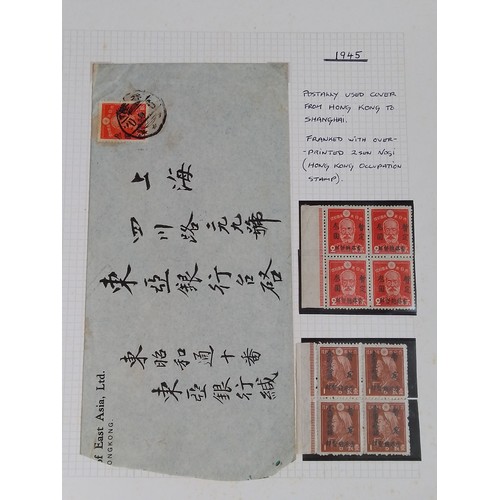 1945
POSTALLY USED COVER
FROM HONG KONG TO
SHANGHAI.
FRANKED WITH OVER-
PRINTED 2 SUN NOGI
(HONG KONG OCCUPATION
STAMP).
上海
四川路二九九號
東亞銀行台啓
東昭和通十番
東亞銀行緘
of East Asia, Ltd.
ONGKONG.